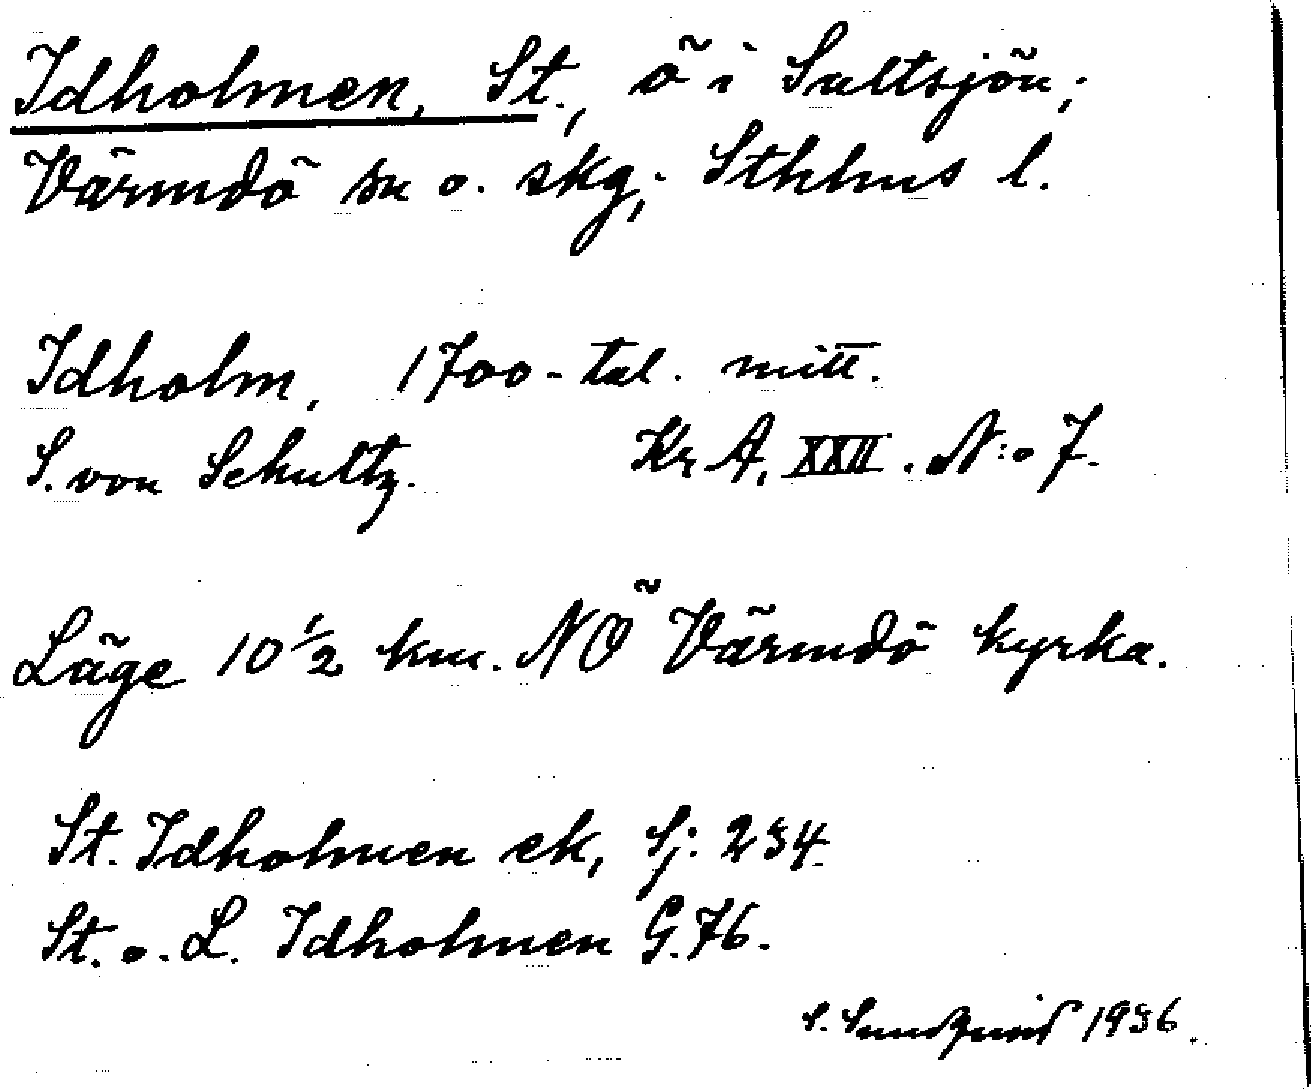 Idholmen, St., ö i Saltsjön;
Värmdö sn o. skg; Sthlms l.
Idholm, 1700-tal. mitt.
S. von Schultz. Kr A, XXII. N:o 7.
Läge 10½ km. NÖ Värmdö kyrka.
St. Idholmen ek, Sj: 234
St. o. L. Idholmen G. 76.
S. 1936.